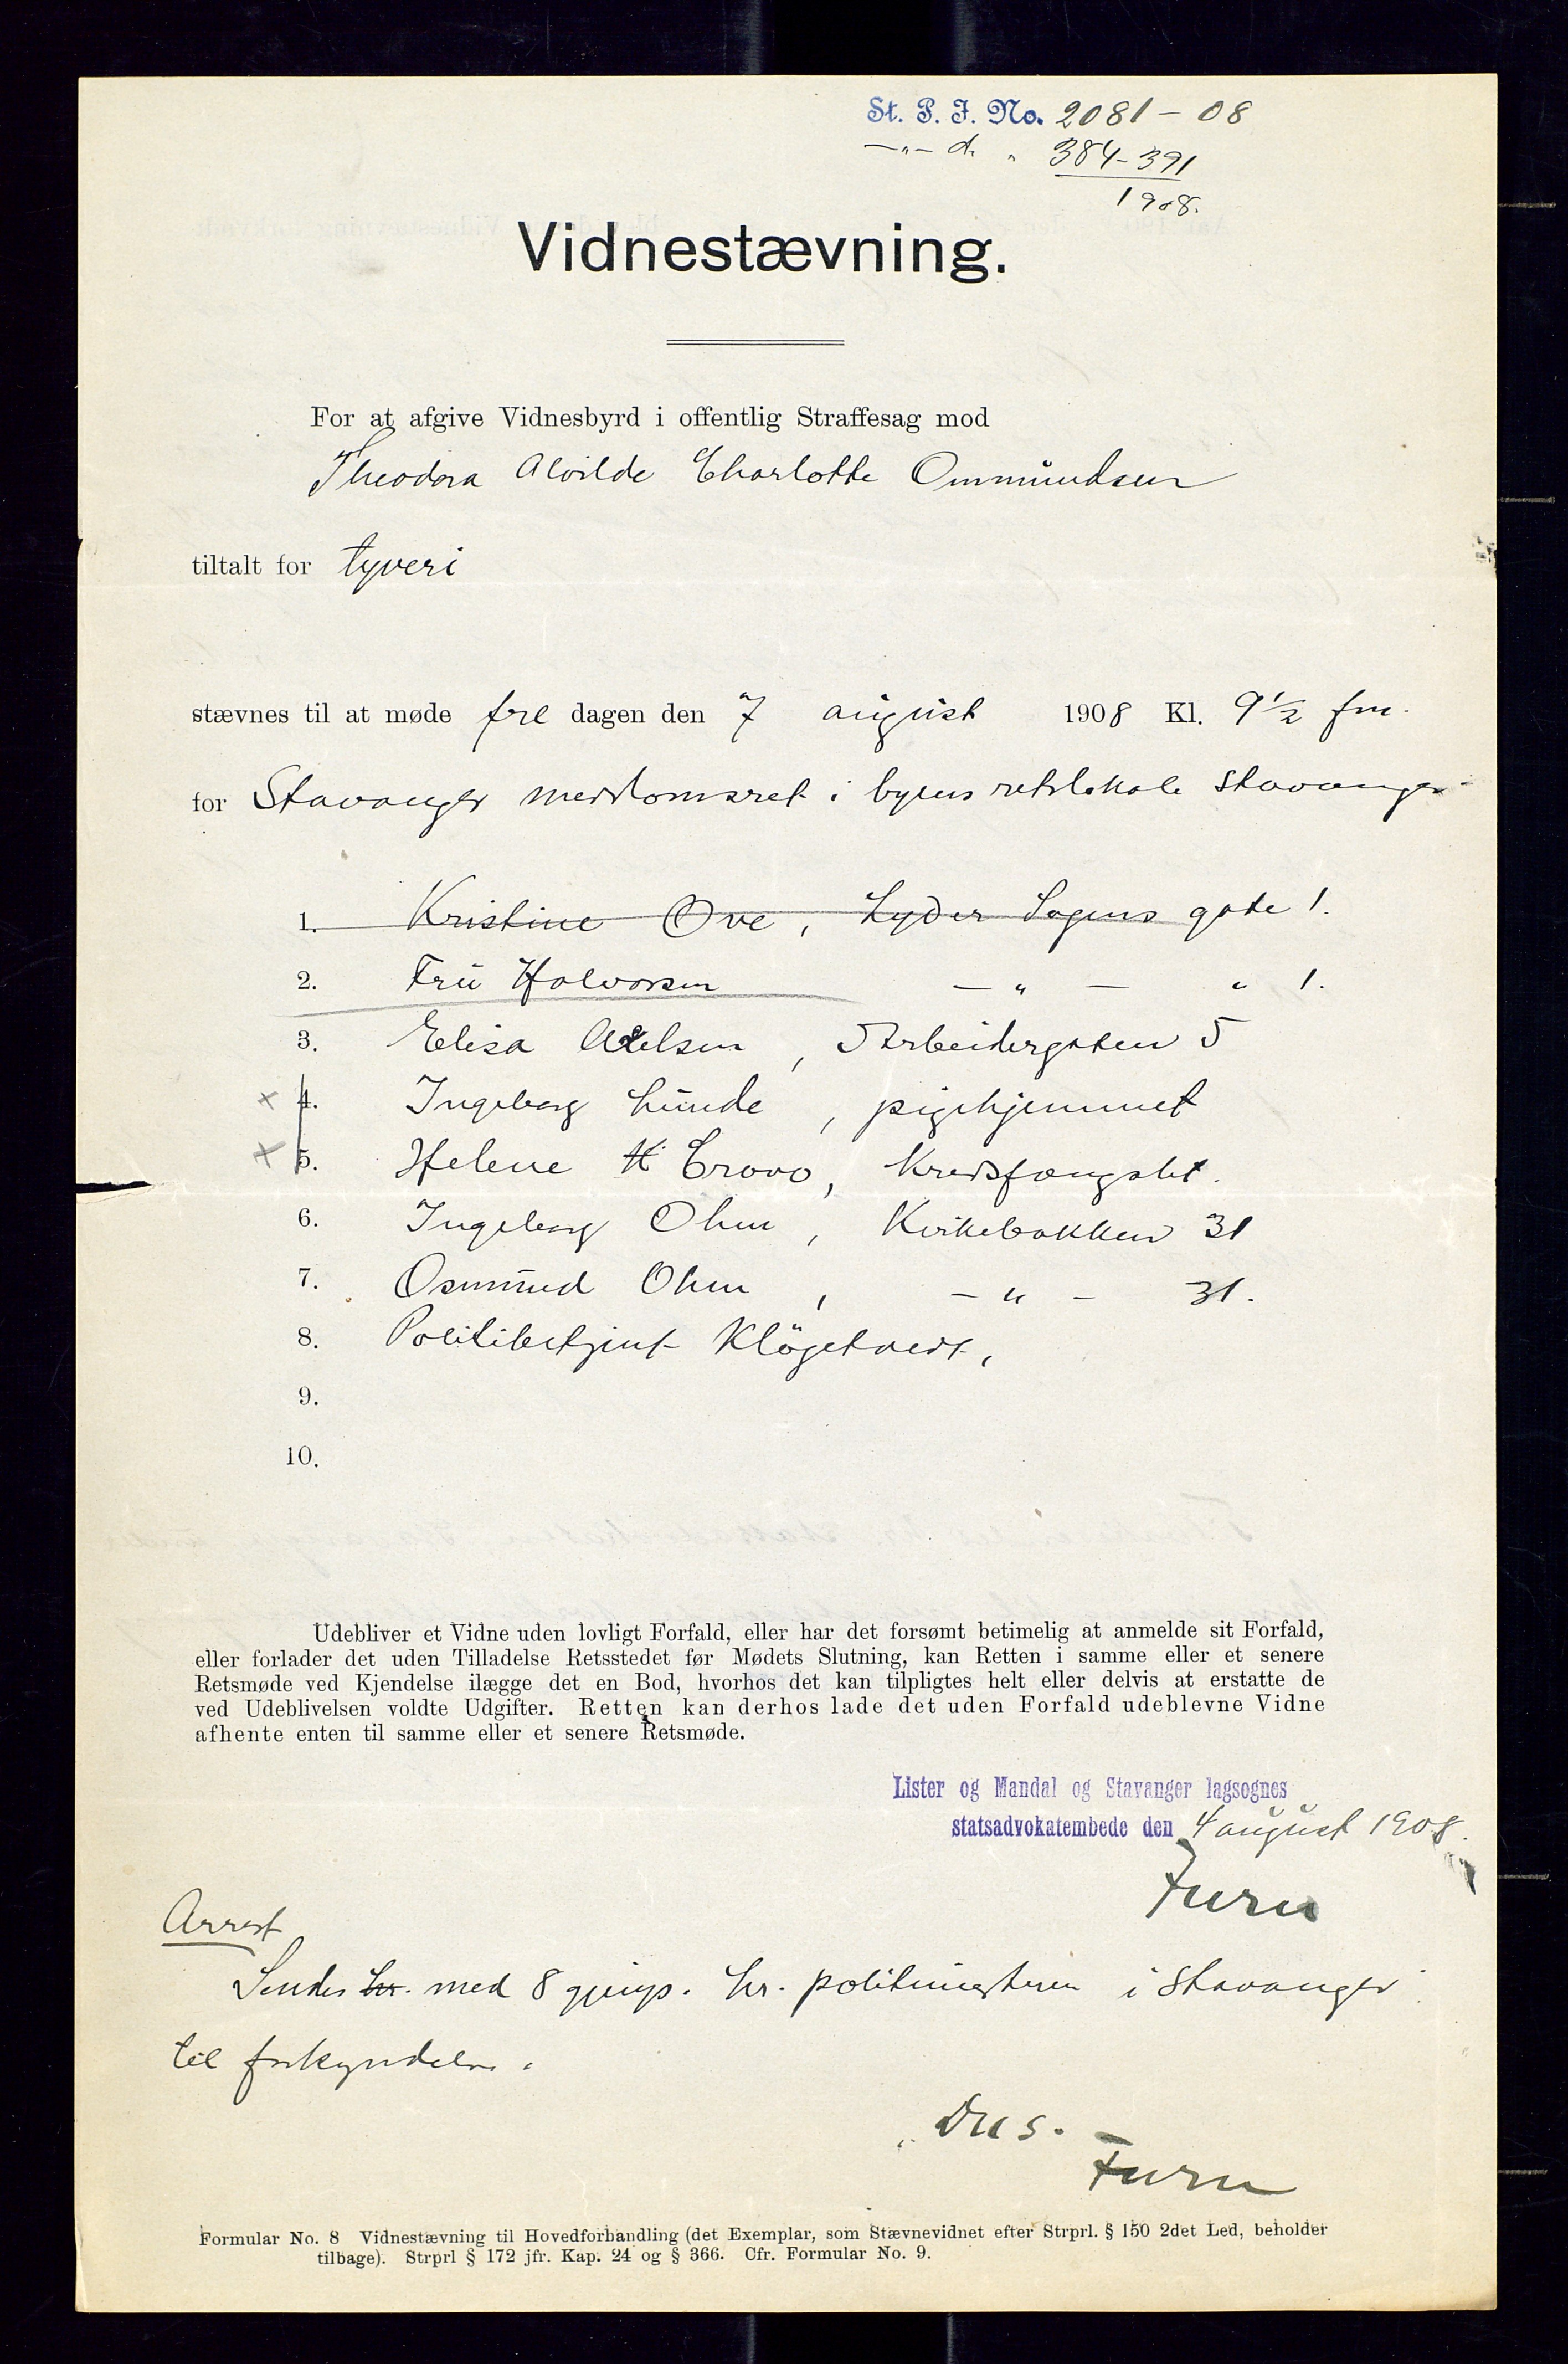 St. P. J. No. 2081 - 08
—"— " 384-391
1908.
Vidnestævning.
For at afgive Vidnesbyrd i offentlig Straffesag mod
Theodora Alvilde Charlotte Ommundsen
tiltalt for tyveri
stævnes til at møde fre dagen den 7 august 1908 Kl. 9½ fm.
for Stavanger meddomsret i byens retslokale Stavanger
1. Kristine Ove, Lyder Sagens gate 1.
2. Fru Halvorsen — " — " 1.
3. Elisa Axelsen, Arbeidergaten 5
× 4. Ingeborg Lunde, pigehjemmet
× 5. Helene Trovo, Kredsfængslet.
6. Ingeborg Ohm, Kirkebakken 31
7. Osmund Ohm, - " - 31.
8. Politibetjent Kløgetvedt,
9.
10.
Udebliver et Vidne uden lovligt Forfald, eller har det forsømt betimelig at anmelde sit Forfald,
eller forlader det uden Tilladelse Retsstedet før Mødets Slutning, kan Retten i samme eller et senere
Retsmøde ved Kjendelse ilægge det en Bod, hvorhos det kan tilpligtes helt eller delvis at erstatte de
ved Udeblivelsen voldte Udgifter. Retten kan derhos lade det uden Forfald udeblevne Vidne
afhente enten til samme eller et senere Retsmøde.
Lister og Mandal og Stavanger lagsognes
statsadvokatembede den 4 august 1908.
Furu
Arrest
Sendes hr. med 8 gjenp. hr. politimesteren i Stavanger
til forkyndelse.
Dus.
Furu
Formular No. 8 Vidnestævning til Hovedforhandling (det Exemplar, som Stævnevidnet efter Strprl. § 150 2det Led, beholder
tilbage). Strprl § 172 jfr. Kap. 24 og § 366. Cfr. Formular No. 9.